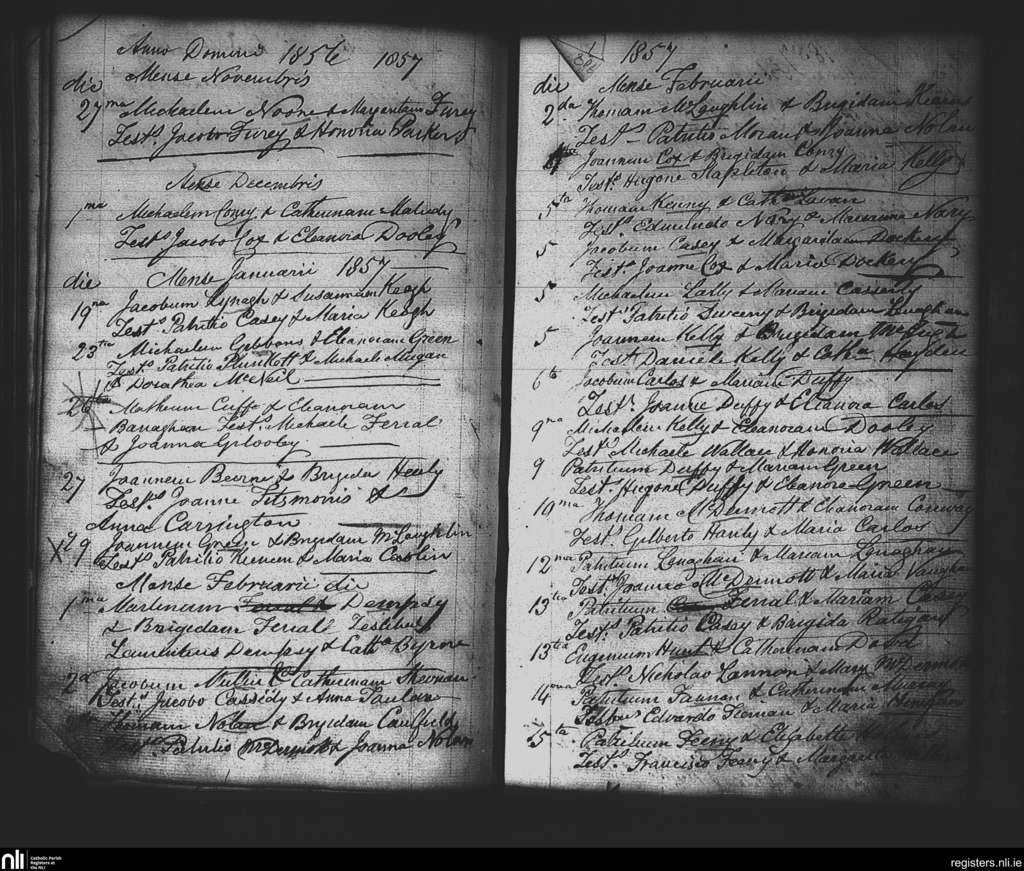 Anno Domini 1856 1857
Mense Novembris
die
27ma Michaelem Noone & Margeritam Furey
Tests Jacobo Furey & Honoria Parker
Mense Decembris
1ma Michaelem Conry & Catherinam Mulvedy
Tests Jacobo Cox & Eleanora Dooley
die Mense Januarii 1857
19na Jacobum Lynagh & Susannam Keogh
Tests Patritio Casey & Maria Keogh
23tia Michaelem Gibbons & Eleanoram Green
Tests Patritio Plunkett & Michaele Mugan
& Dorothea McNeil
26ta Matheum Cuffe & Eleanoram
Banaghean Tests Michaele Ferral
& Joanna Gilooley
27 Joannem Beirne & Brigida Healy
Tests Joanne Fitsmoris &
Anna Carrington
29 Joannem Green & Brigedam McLoughlin
Tests Patritio Kenem & Maria Carlin
Mense Februarii die
1ma Martinum Dempsy
& Brigedam Ferall Testibus
Laurentius Dempsy & Catha Byrne
2d Jacobum & Catherinam
Tests Jacobo Cassidy & Anna
Nolan & Brigedam Caulfield
Tests Patritio McDermott & Joanna Nolan
1857
die Mense Februarii
2da Thomam McLoughlin & Brigidam Kearns
Tests Patritio Moran & Joanna Nolan
Joannem Cox & Brigidam Conry
Tests Hugone Stapleton & Maria Kelly
5ta Thomam Kenny & Cath Lavan
Tests Edmundo Nary & Marianna Nary
5 Jacobum Casey & Margaritam Dockery
Tests Joanne Cox & Maria Dockery
5 Michaelem Lally & Mariam Casserly
Tests Patritio Sweeny & Brigidam
5 Joannem Kelly & Brigidam McHugh
Tests Daniele Kelly & Catha Hayden
6ta Jacobum Carlos & Mariam Duffy
Tests Joanne Duffy & Eleanora Carlos
9na Michaelem Kelly & Eleanoram Dooley
Tests Michaele Wallace & Honoria Wallace
9 Patritium Duffy & Mariam Green
Tests Hugone Duffy & Eleanore Green
10ma Thomam McDermott & Eleanoram Conway
Tests Gilberto Hanly & Maria Carlos
12ma Patritium Lenaghan & Mariam Lenaghan
Tests Joanne McDermott & Maria Vaughan
13tia Patritium Ferral & Mariam Casey
Tests Patritio Casey & Brigida Ratigan
13tia Eugenium Hunt & Catherinam Dowd
Tests Nicholao Lannon & Mary McDermott
14ma Patritium & Catherinam
Testbus Edvardo & Maria
15ta Patritium Feeny & Elizabette
Tests Francisco Feeny & Margarita
nli Catholic Parish
Registers at
the NLI
registers.nli.ie